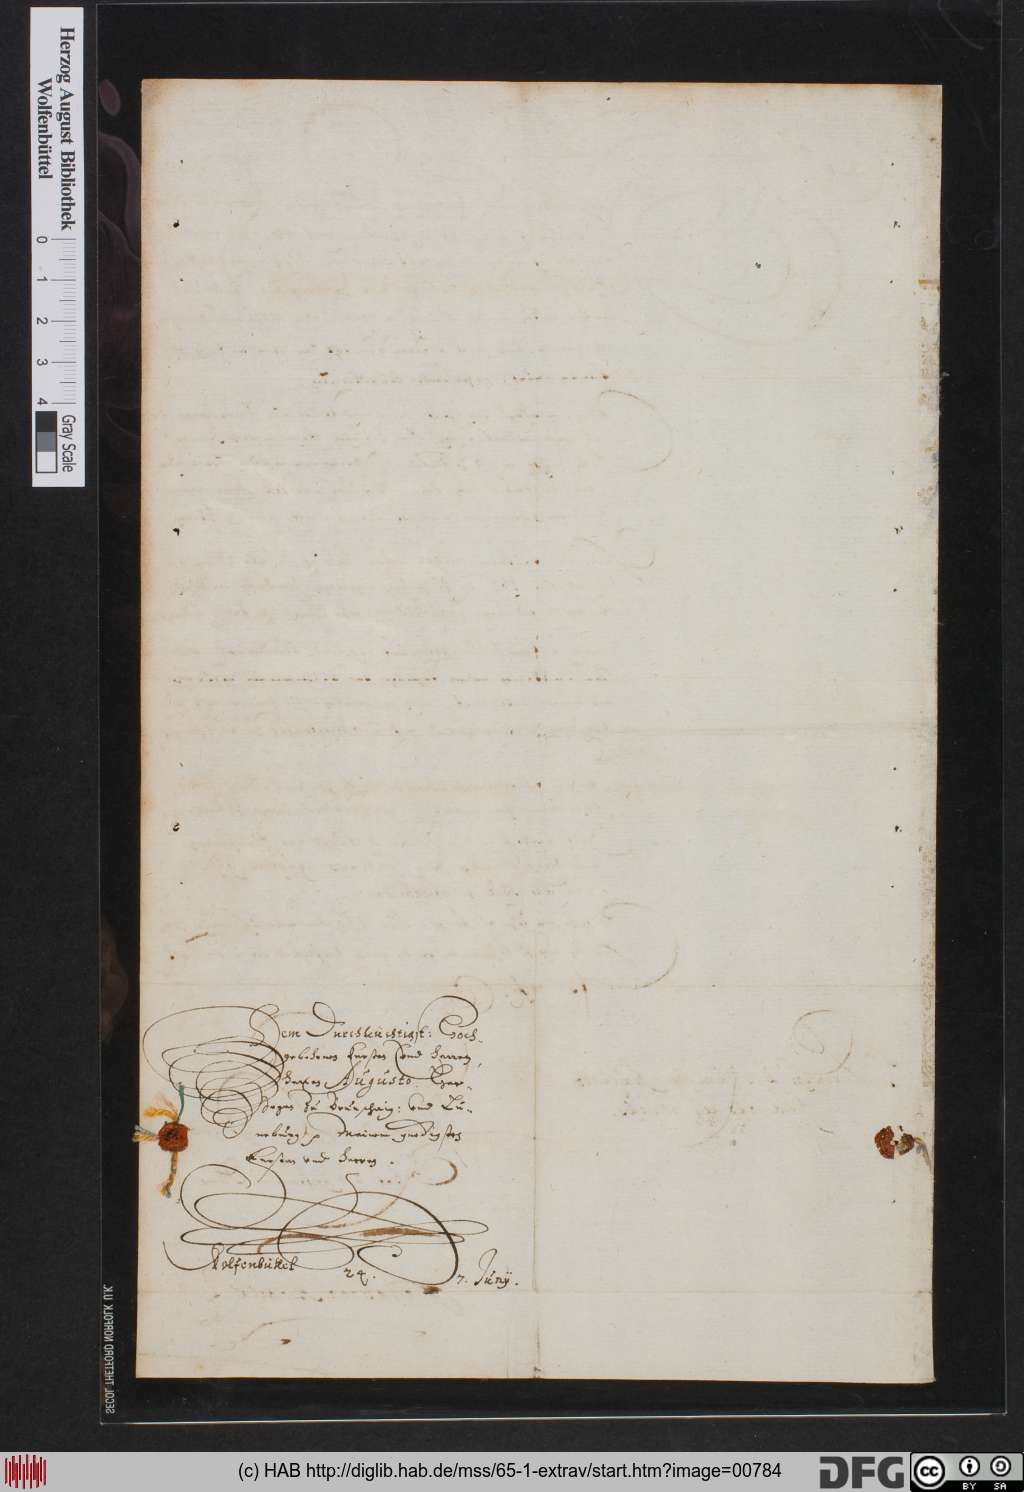 Herzog August Bibliothek
Wolfenbüttel
0 1 2 3 4
Gray Scale
Dem Durchleuchtigst: Hoch-
gebohrnen Fursten und Herren,
Herren Augusto Her-
zogen zu Braunschweig: und Lü-
neburg meinem gnedigsten
Fursten und Herren.
Wolfenbüttel
24.
7. Juny.
SECOL THETFORD NORFOLK U.K.
(c) HAB http://diglib.hab.de/mss/65-1-extrav/start.htm?image=00784
DFG
cc
BY SA